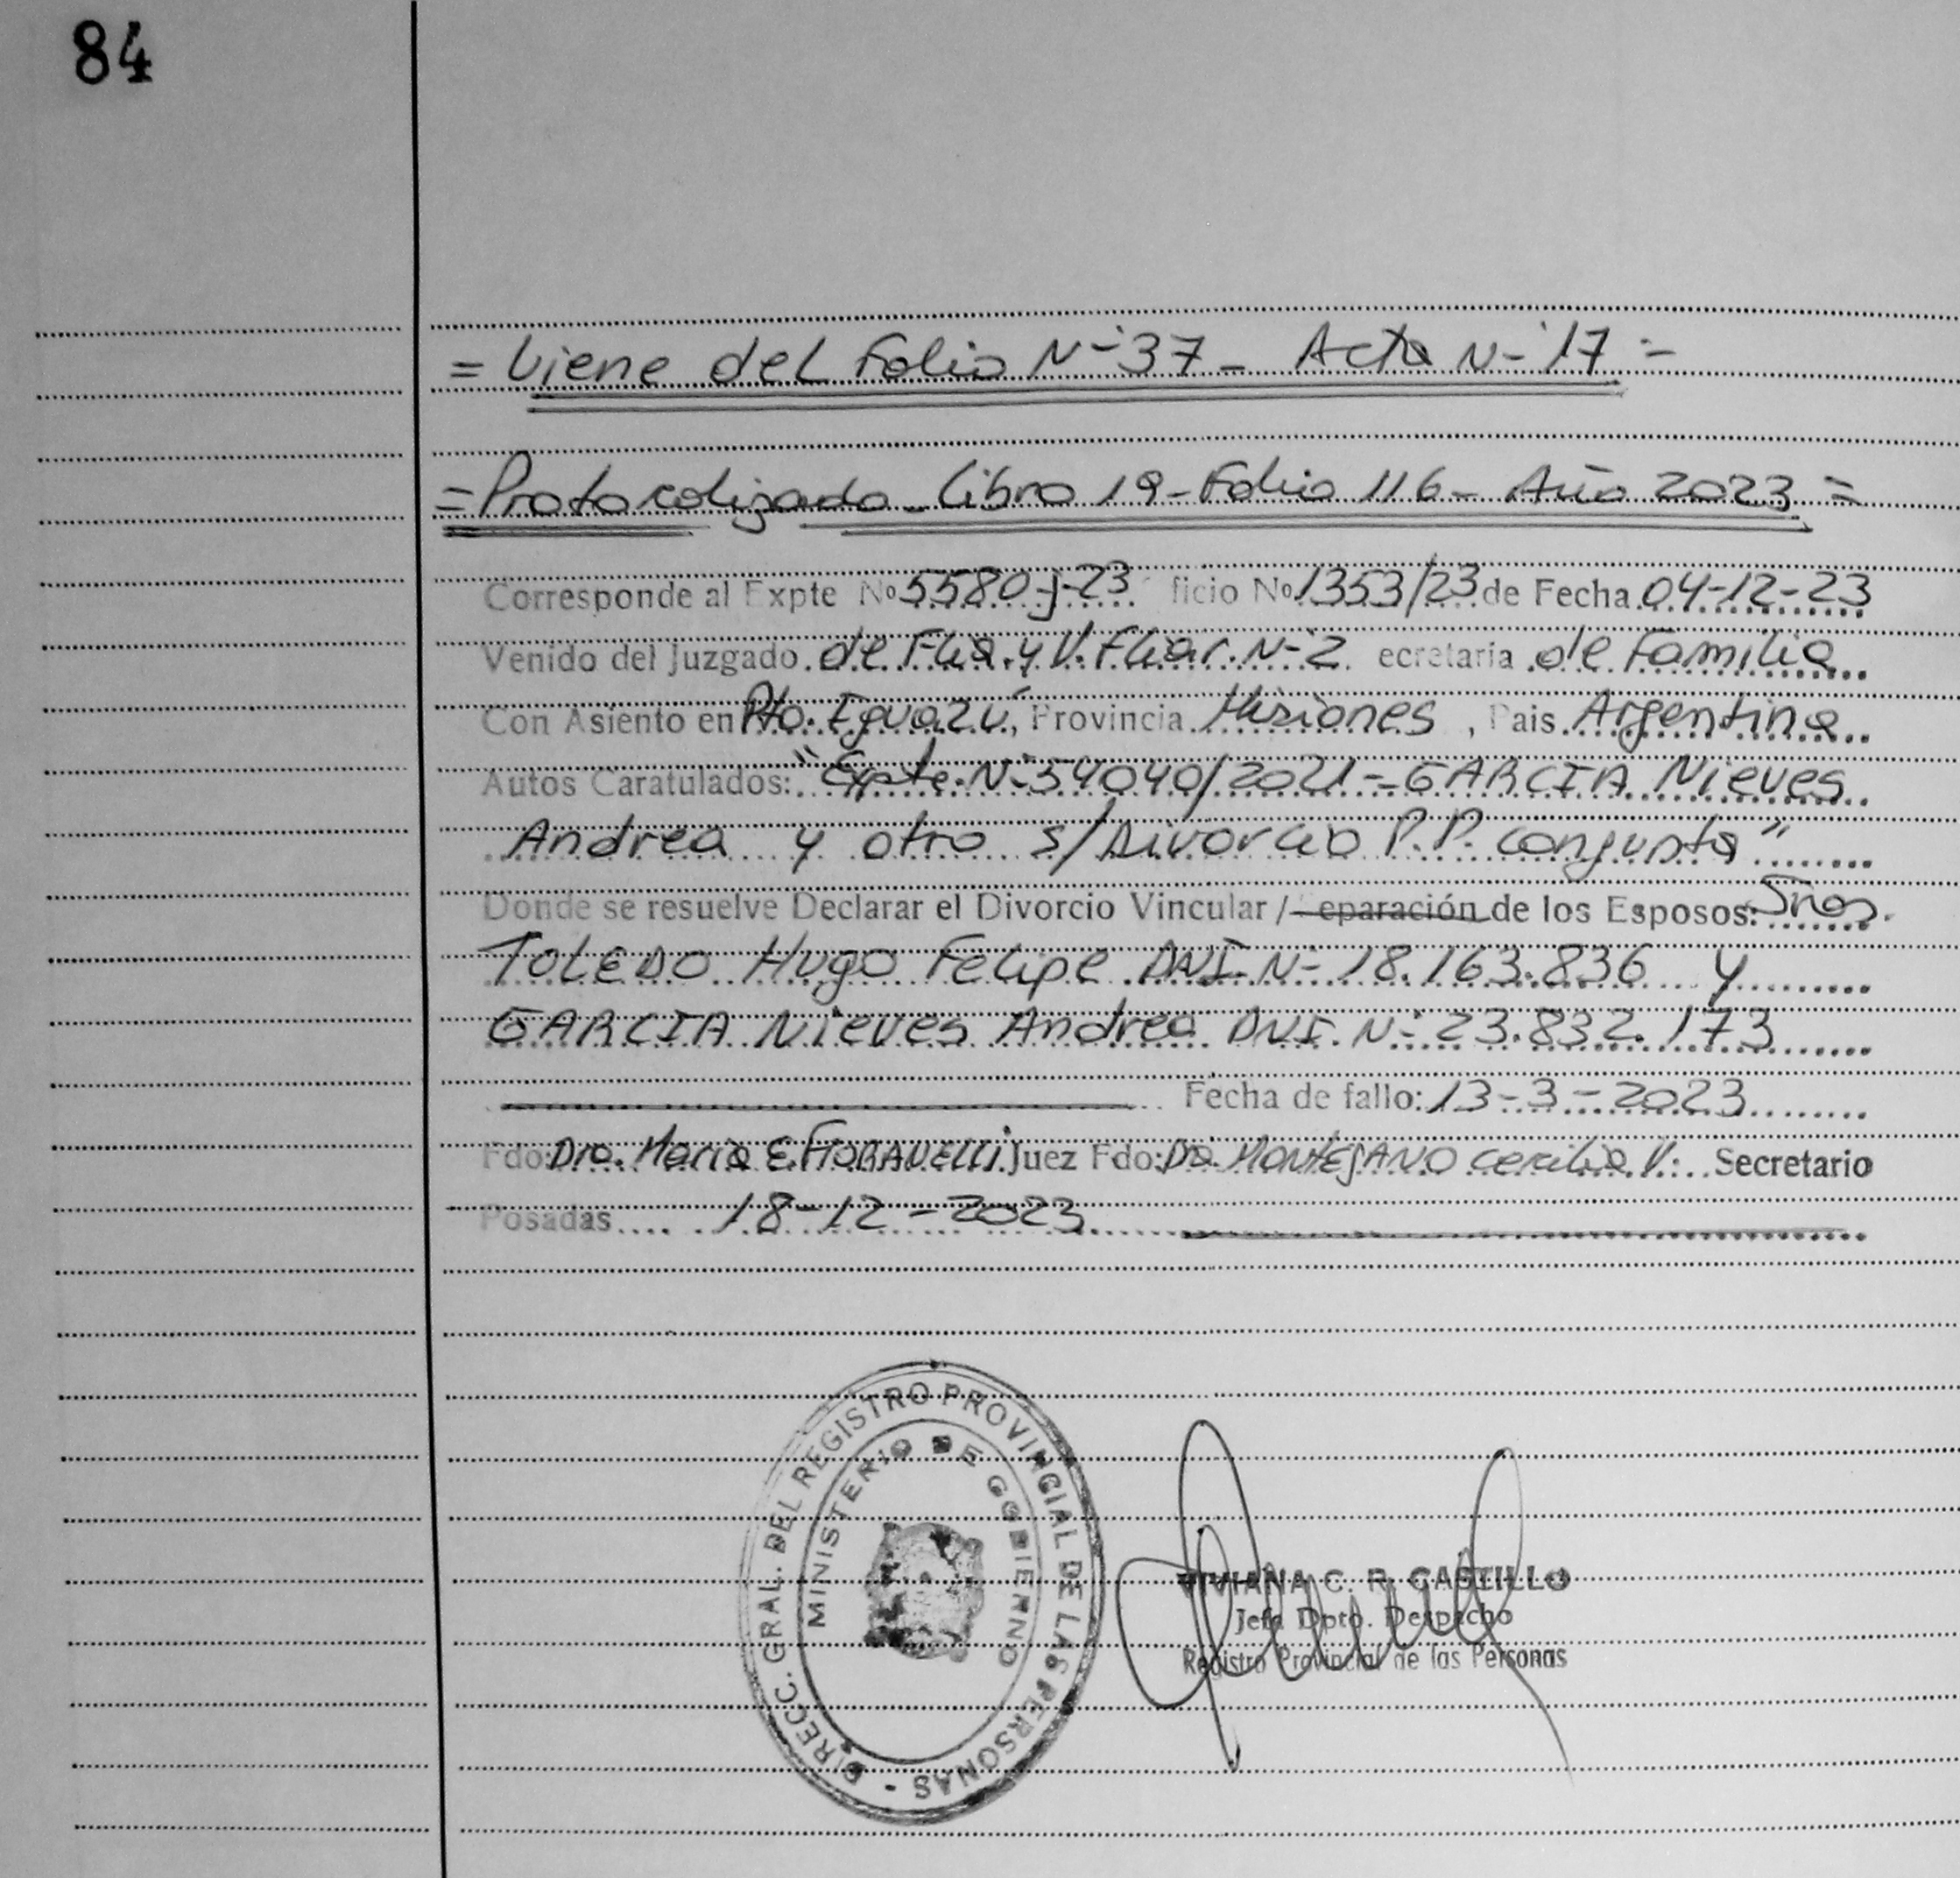 84
= Viene del Folio N-° 37 - Acta N-° 17 =
= Protocolizado - Libro 19 - Folio 116 - Año 2023 =
Corresponde al Expte Nº 5580-J-23 ficio Nº 1353/23 de Fecha 04-12-23
Venido del Juzgado de Flia. y V. Fliar. N-° 2 ecretaría de Familia
Con Asiento en Pto. Iguazú, Provincia Misiones, Pais Argentina
Autos Caratulados: "Expte. N-° 54040/2021 - GARCIA Nieves
Andrea y otro s/ Divorcio P.P. conjunta"
Donde se resuelve Declarar el Divorcio Vincular / eparación de los Esposos: Sres.
TOLEDO Hugo Felipe DNI. N-° 18.163.836 y
GARCIA Nieves Andrea DNI. N-° 23.832.173
Fecha de fallo: 13-3-2023
Fdo: Dra. María E. FIORAVELLI Juez Fdo: Dra. MONTEJANO Cecilia V. Secretario
Posadas 18-12-2023
DIRECC. GRAL. DEL REGISTRO PROVINCIAL DE LAS PERSONAS -
MINISTERIO DE GOBIERNO
VIVIANA C. R. CASTILLO
Jefa Dpto. Despacho
Registro Provincial de las Personas